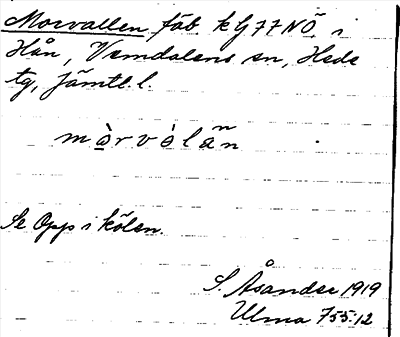 Morvallen fäb. kG77NÖ. i
Hån, Vemdalens sn, Hede
tg, Jämtl. l.
mòrvòlän
Se Opp i kölen.
S. Åsander 1919
Ulma 755:12